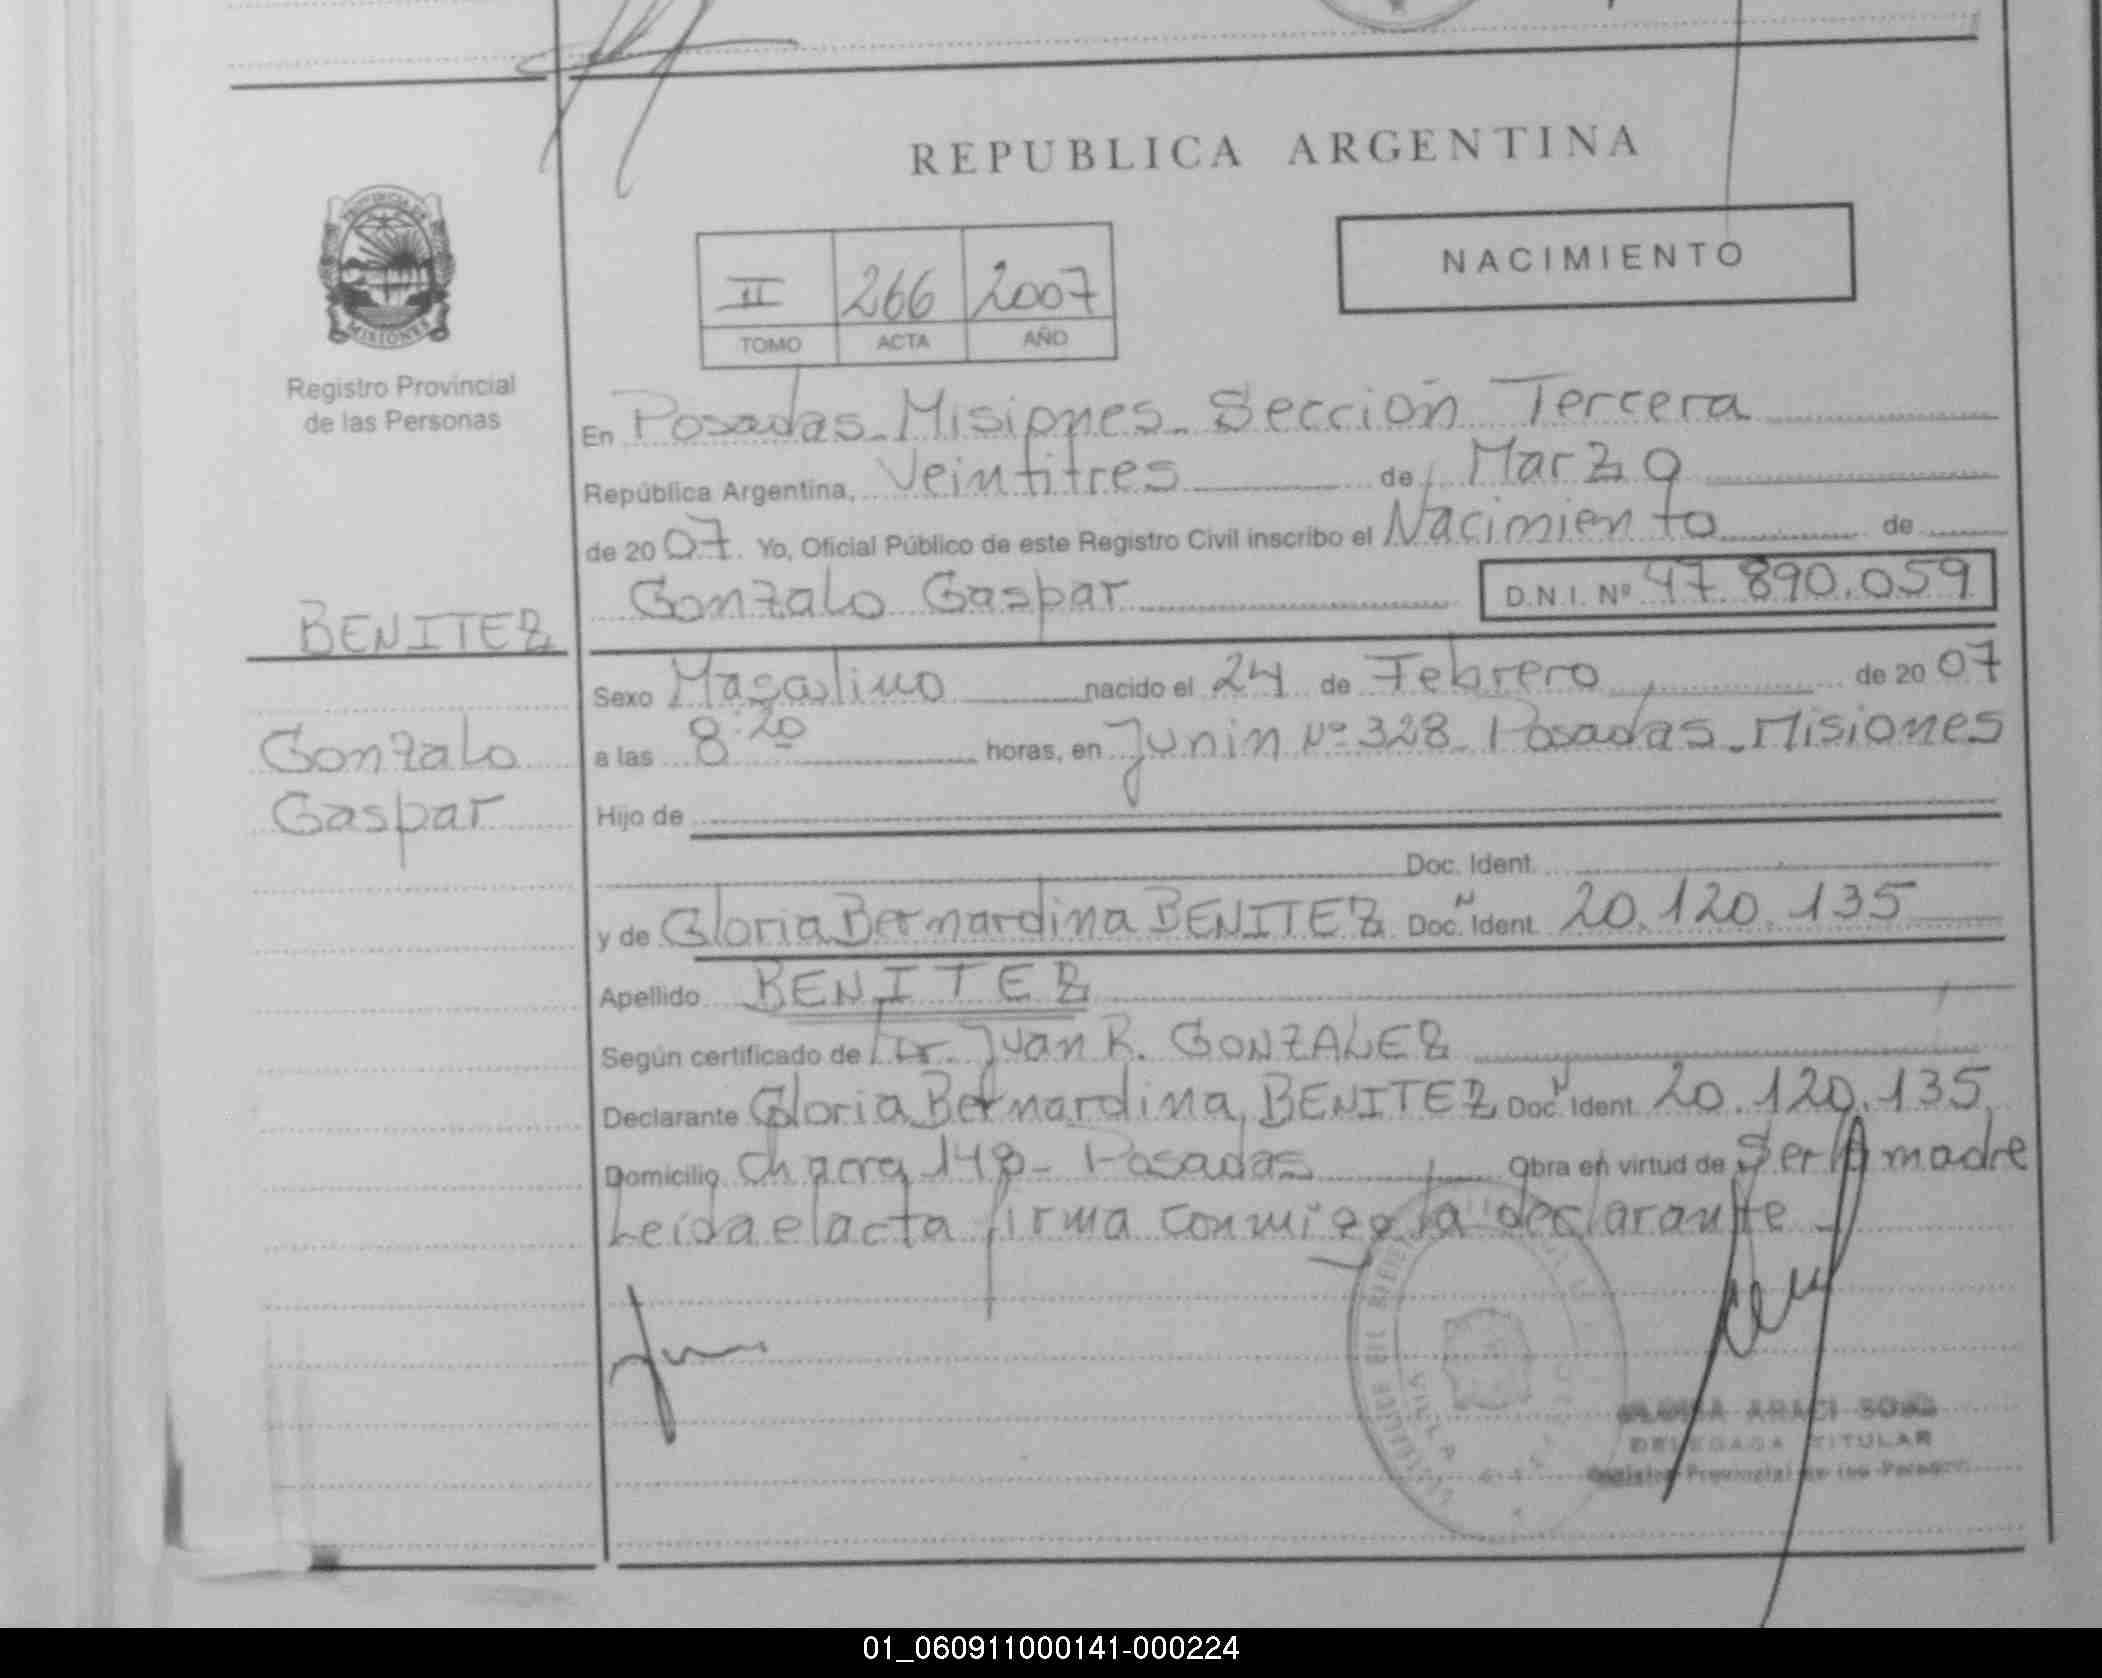 REPUBLICA ARGENTINA
NACIMIENTO
II 266 2007
TOMO ACTA AÑO
PROVINCIA DE
MISIONES
Registro Provincial
de las Personas
En Posadas - Misiones - Sección Tercera
República Argentina, Veintitres de Marzo
de 2007. Yo, Oficial Público de este Registro Civil inscribo el Nacimiento de
Gonzalo Gaspar D.N.I. Nº 47.890.059
BENITEZ
Gonzalo
Gaspar
Sexo Masculino nacido el 24 de Febrero de 2007
a las 8:20 horas, en Junin Nº 328 - Posadas - Misiones
Hijo de
Doc. Ident.
y de Gloria Bernardina BENITEZ Doc. N Ident. 20.120.135
Apellido BENITEZ
Según certificado de Dr. Juan R. GONZALEZ
Declarante Gloria Bernardina BENITEZ Doc. N Ident. 20.120.135
Domicilio Chacra 148 - Posadas Obra en virtud de Ser la madre
Leida el acta firma conmigo la declarante
ARACI
DELEGADA TITULAR
Registro Provincial de las Personas
01_060911000141-000224